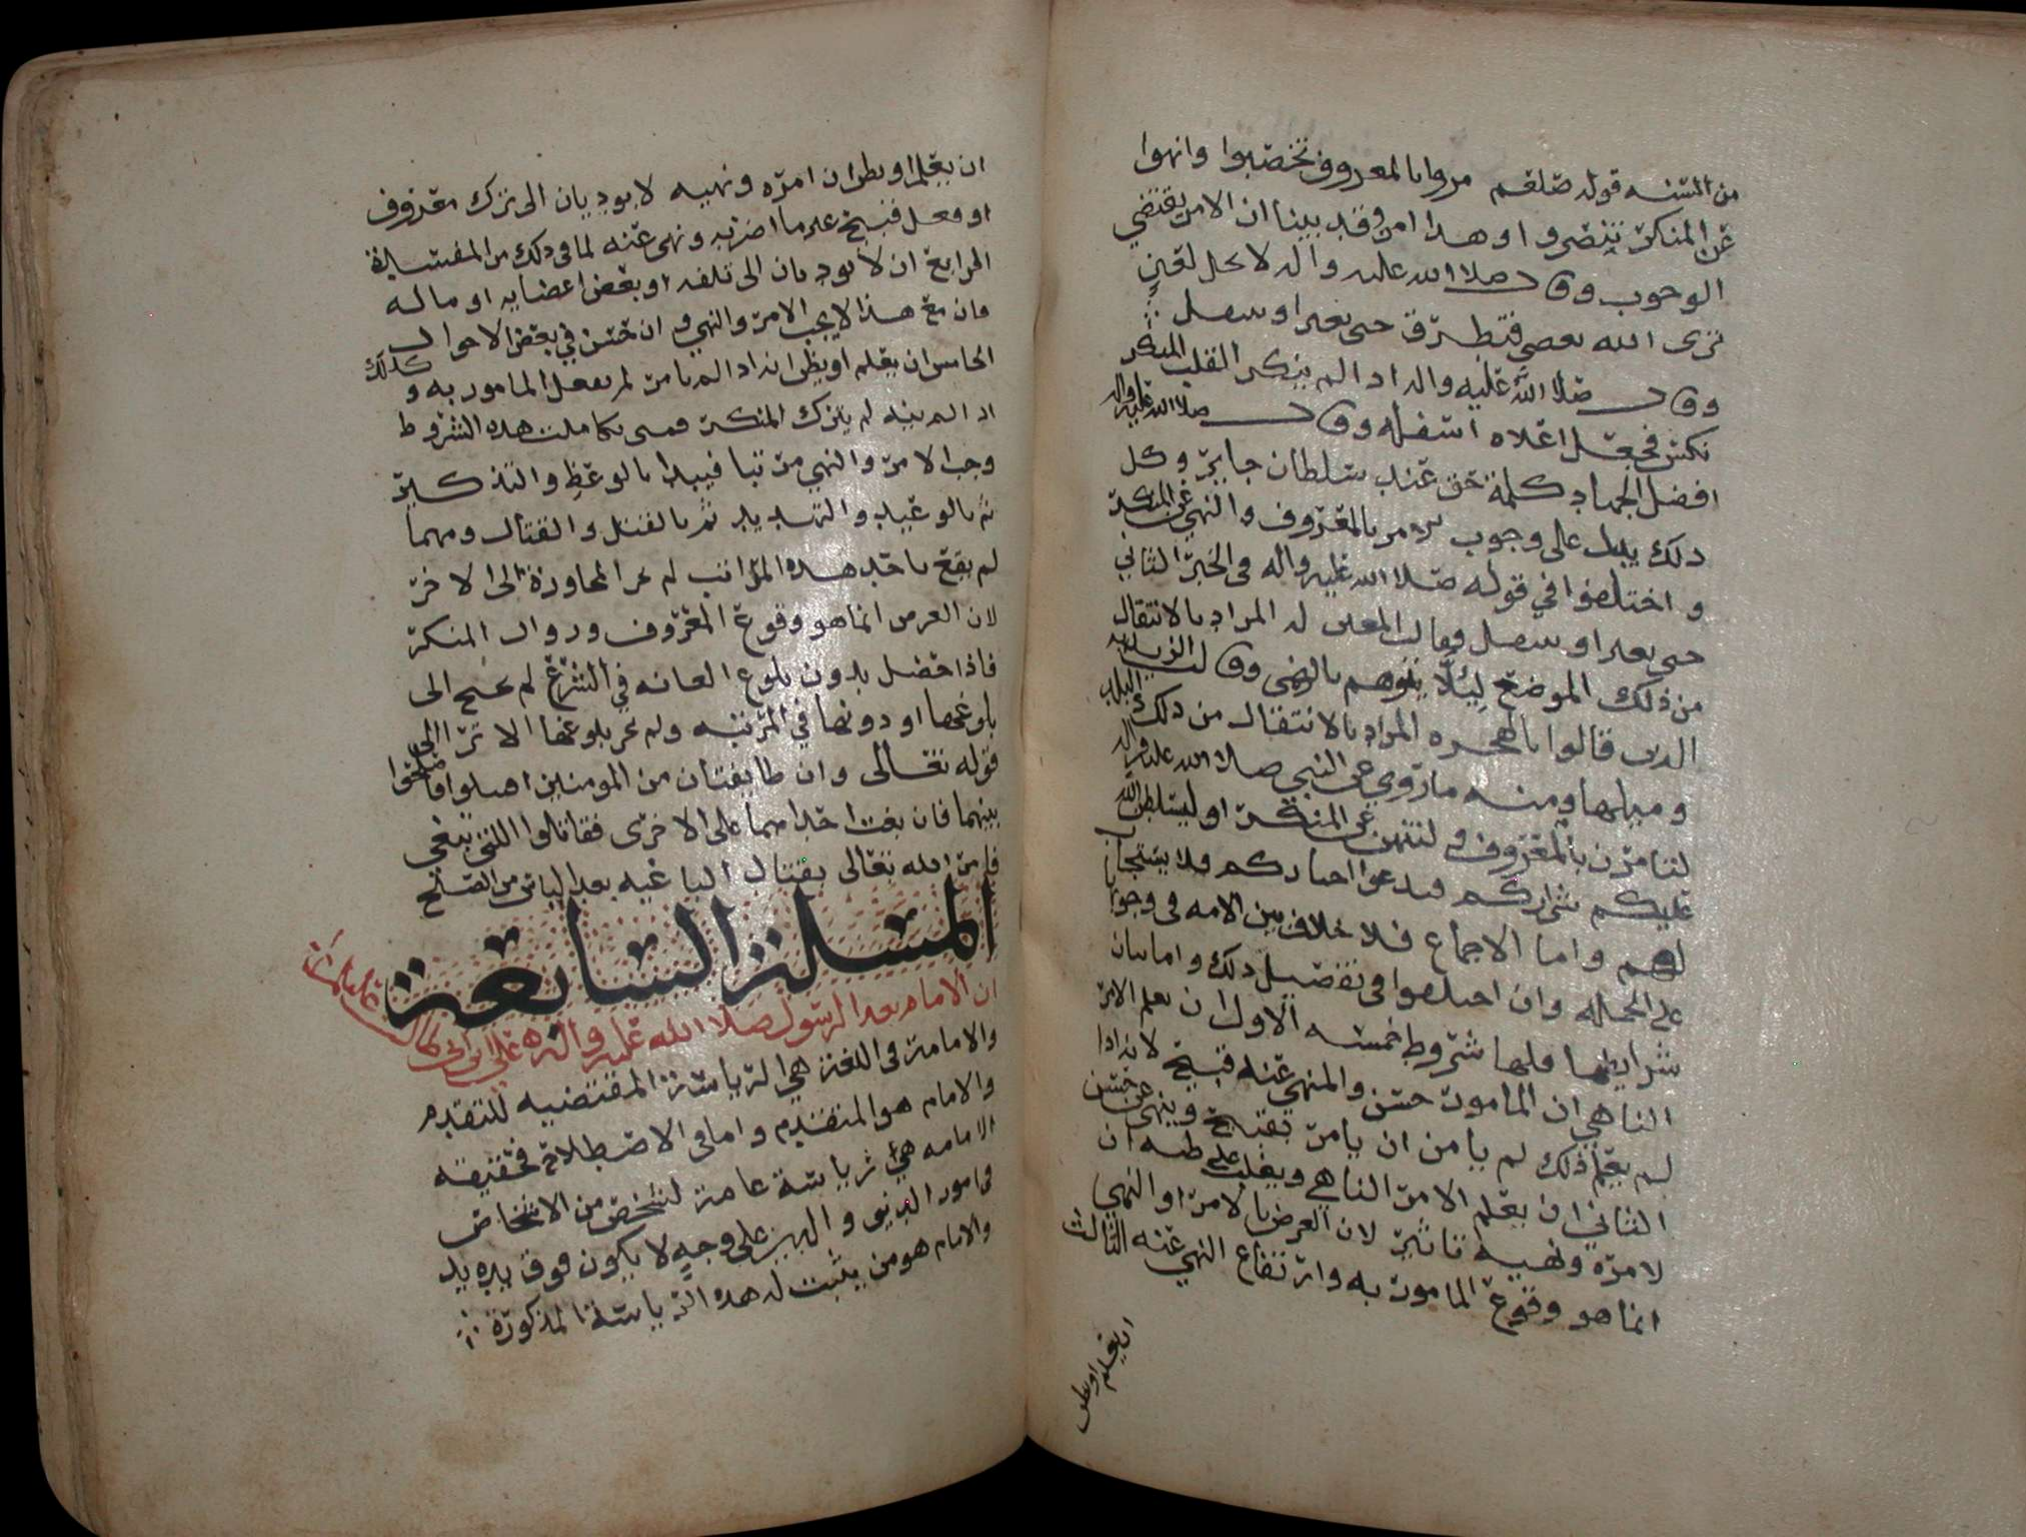 من السنه قوله صلعم مروا بالمعروف تخصبوا وانهوا
عن المنكر تنصروا وهذا امر وقد بينا ان الامر يقتضي
الوجوب وقال صلا الله عليه واله لا يحل لعين
ترى الله يعصى فتطرق حتى تغير او تنتقل
وقال صلا الله عليه واله اذا لم ينكر القلب المنكر
نكس فجعل اعلاه اسفله وقال صلا الله عليه واله
افضل الجهاد كلمة حق عند سلطان جاير وكل
ذلك يدل على وجوب الامر بالمعروف والنهي عن المنكر
واختلفوا في قوله صلا الله عليه واله في الخبر الثاني
حتى تغير او تنتقل فقالت المعتزله المراد بالانتقال
من ذلك الموضع ليلا يتوهم بالرضى وقالت الزيديه
الذين قالوا بالهجره المراد بالانتقال من ذلك البلد
وميلها ومنه ما روي عن النبي صلا الله عليه واله
لتامرن بالمعروف ولتنهن عن المنكر او ليسلطن الله
عليكم شراركم فيدعوا خياركم فلا يستجاب
لهم واما الاجماع فلا خلاف بين الامه في وجوبها
على الجمله وان اختلفوا في تفصيل ذلك واما بيان
شرايطها فلها شروط خمسه الاول ان يعلم الامر
الناهي ان المامور حسن والمنهي عنه قبيح لانه اذا
لم يعلم ذلك لم يامن ان يامر بقبيح وينهى عن حسن
الثاني ان يعلم الامر الناهي ويغلب على ظنه ان
لامره ونهيه تاثير لان الغرض بالامر او النهي
انما هو وقوع المامور به وارتفاع النهي عنه الثالث
ان يعلم او يظن
ان يعلم او يظن ان امره ونهيه لا يوديان الى ترك معروف
او فعل قبيح غير ما امر به ونهى عنه لما في ذلك من المفسدة
الرابع ان لا يوديان الى تلفه او بعض اعضايه او ماله
فان مع هذا لا يجب الامر والنهي وان حسن في بعض الاحوال
الخامس ان يعلم او يظن انه اذا لم يامر لم يفعل المامور به وكذلك
اذا لم ينه لم يترك المنكر فمتى تكاملت هذه الشروط
وجب الامر والنهي مرتبا فيبدا بالوعظ والتذكير
ثم بالوعيد والتهديد ثم بالقتل والقتال ومهما
لم يقع باحد هذه المراتب لم يجز المجاوزة الى الاخر
لان الغرض انما هو وقوع المعروف وزوال المنكر
فاذا حصل بدون بلوغ الغايه في الشرع لم يحتج الى
بلوغها او دونها في المرتبه ولم يجز بلوغها الا ترا الى
قوله تعالى وان طايفتان من المومنين اقتتلوا فاصلحوا
بينهما فان بغت احداهما على الاخرى فقاتلوا اللتي تبغي
فامر الله تعالى بقتال الباغيه بعد الياس من الصلح
المسلة السابعة
ان الامام بعد الرسول صلا الله عليه واله علي ابن ابي طالب
والامامة في اللغة هي الرياسة المقتضيه للتقدم
والامام هو المتقدم واما في الاصطلاح فحقيقة
الامامه هي رياسة عامة لشخص من الاشخاص
في امور الدين والدنيا على وجه لا يكون فوق يده يد
والامام هو من يثبت له هذه الرياسة المذكورة